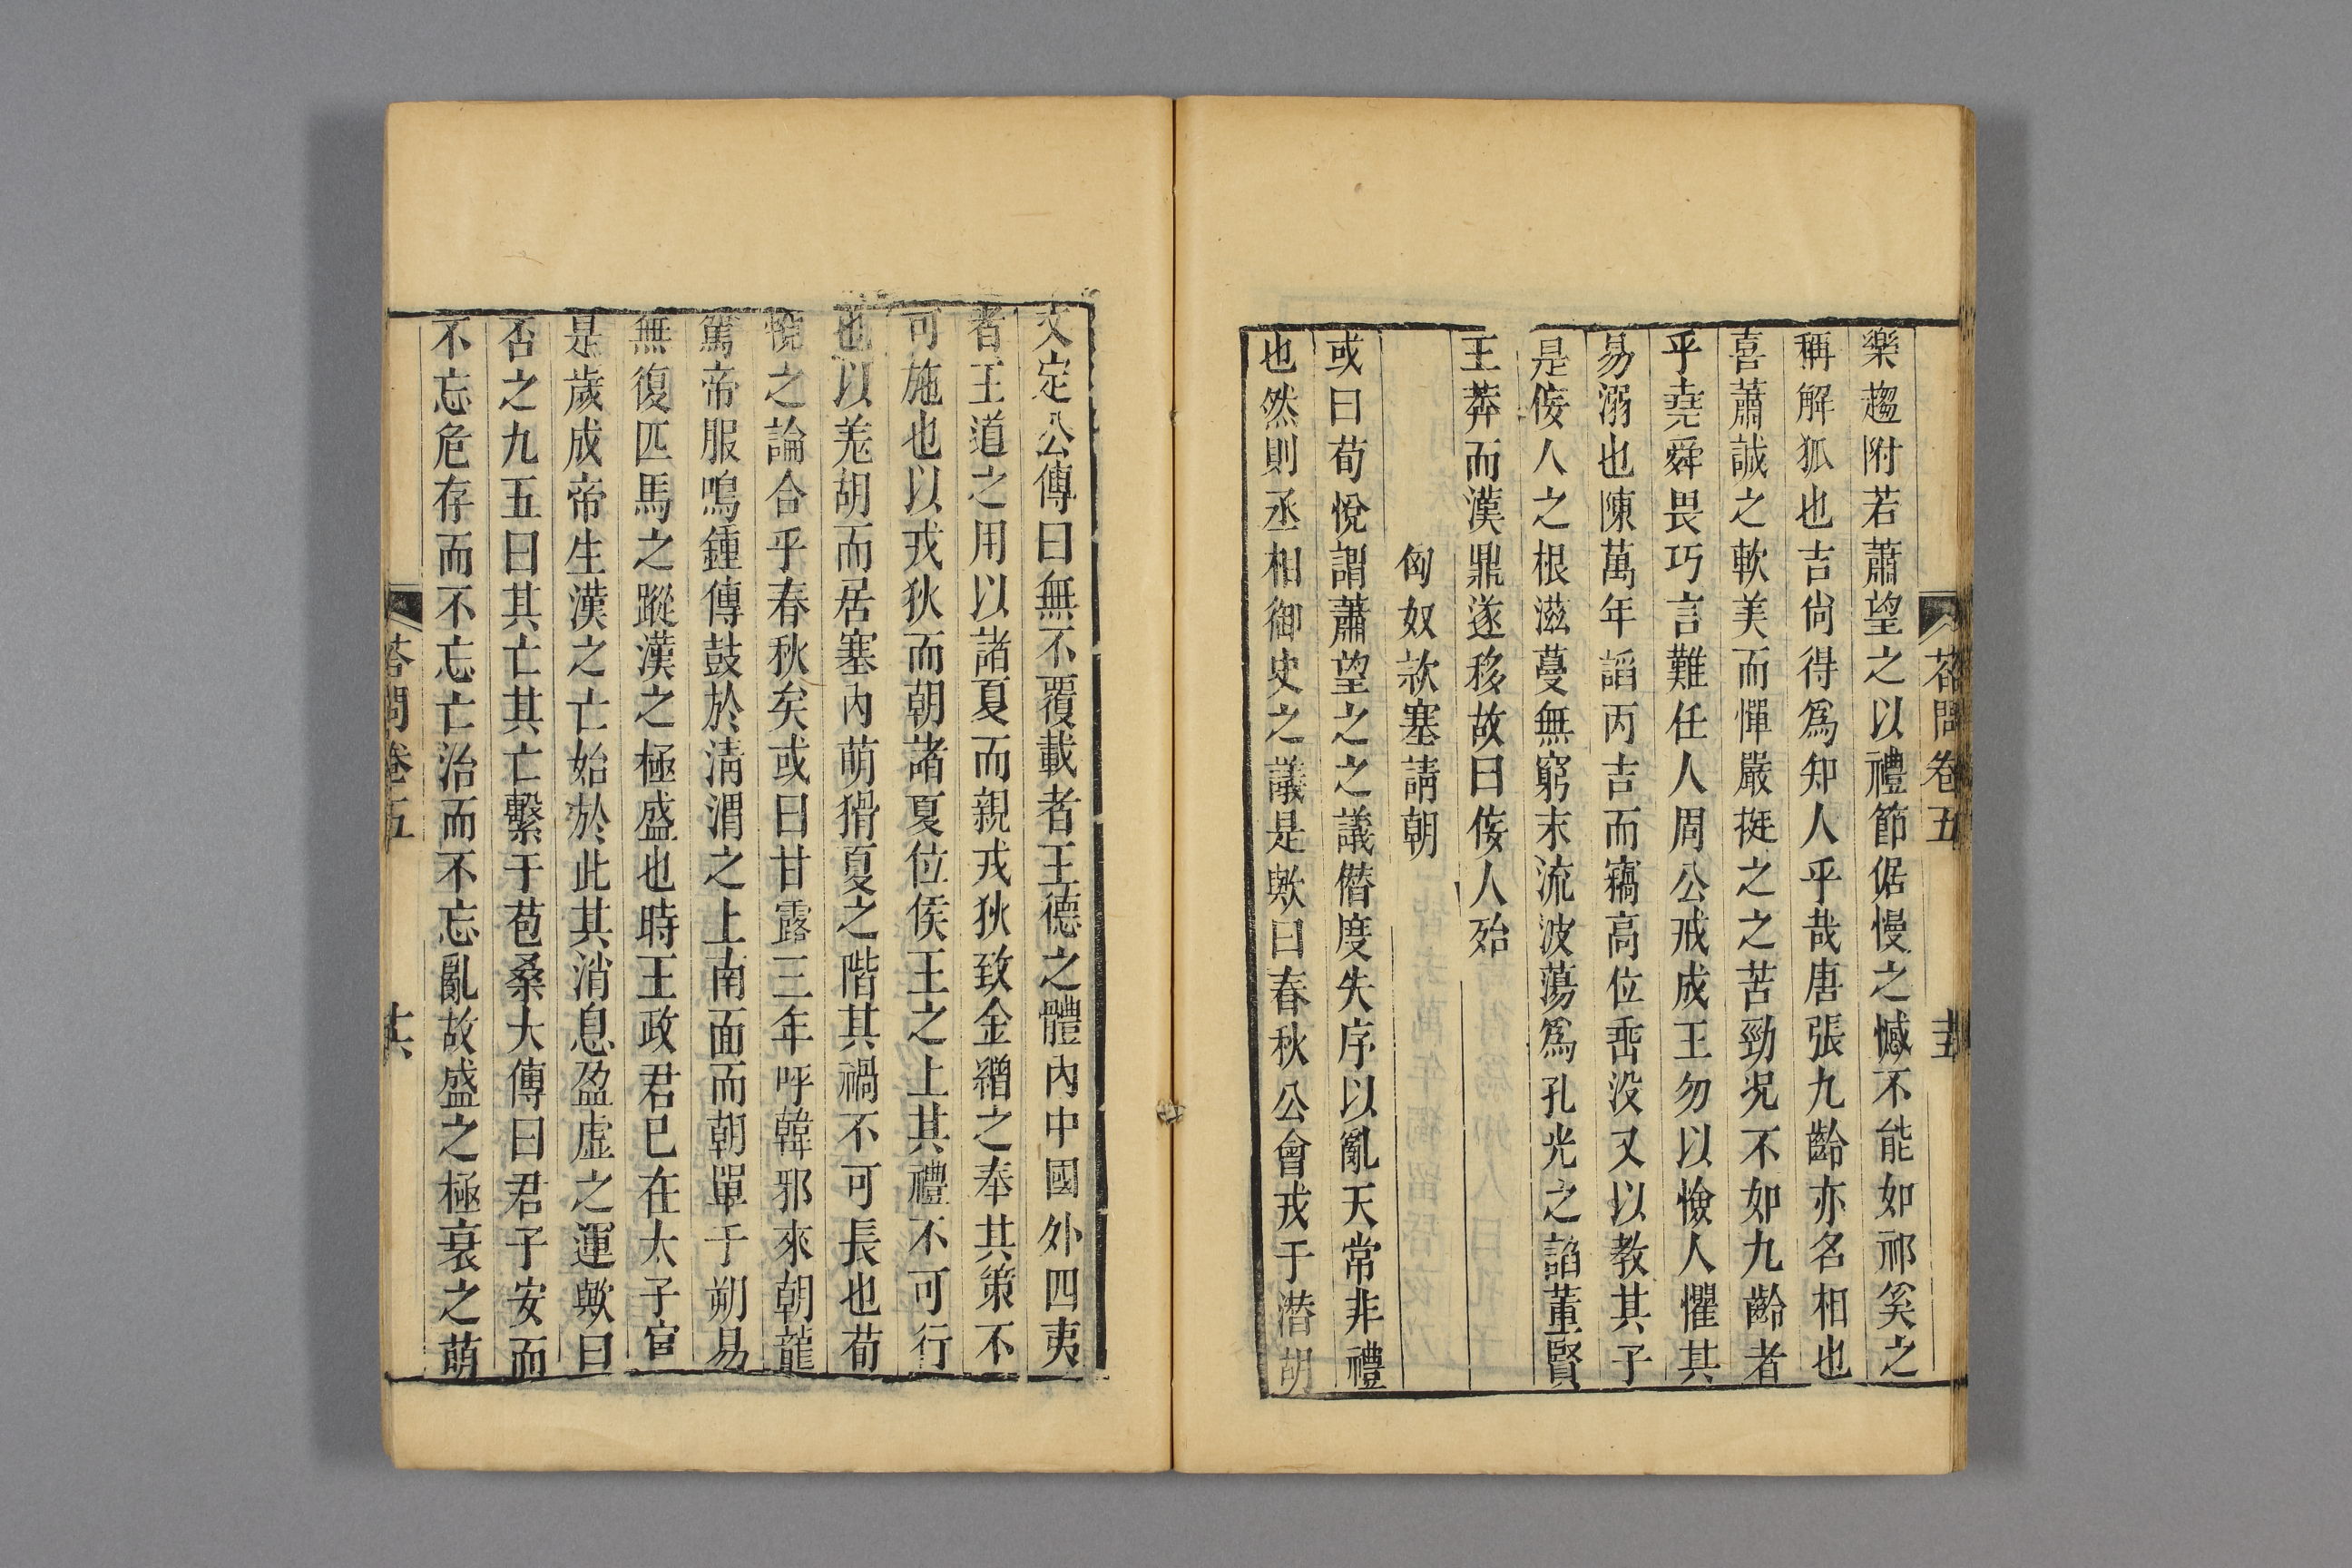 荅問卷五
十五
樂趨附若蕭望之以禮節倨慢之憾不能如祁奚之
稱解狐也吉尙得爲知人乎哉唐張九齡亦名相也
喜蕭誠之軟美而憚嚴挺之之苦勁况不如九齡者
乎堯舜畏巧言難任人周公戒成王勿以憸人懼其
易溺也陳萬年謟丙吉而竊高位垂没又以教其子
是佞人之根滋蔓無窮末流波蕩爲孔光之諂董賢
王莽而漢鼎遂移故曰佞人殆
匈奴款塞請朝
或曰荀悅謂蕭望之之議僭度失序以亂天常非禮
也然則丞相御史之議是歟曰春秋公會戎于潜胡
文定公傳曰無不覆載者王德之體內中國外四夷
者王道之用以諸夏而親戎狄致金繒之奉其策不
可施也以戎狄而朝諸夏位侯王之上其禮不可行
也以羌胡而居塞內萌猾夏之階其禍不可長也荀
悅之論合乎春秋矣或曰甘露三年呼韓邪來朝龍
駕帝服鳴鍾傳鼓於淸渭之上南面而朝單于朔易
無復匹馬之蹤漢之極盛也時王政君已在太子宫
是歲成帝生漢之亡始於此其消息盈虛之運歟曰
否之九五曰其亡其亡繫于苞桑大傳曰君子安而
不忘危存而不忘亡治而不忘亂故盛之極衰之萌
荅問卷五
十六